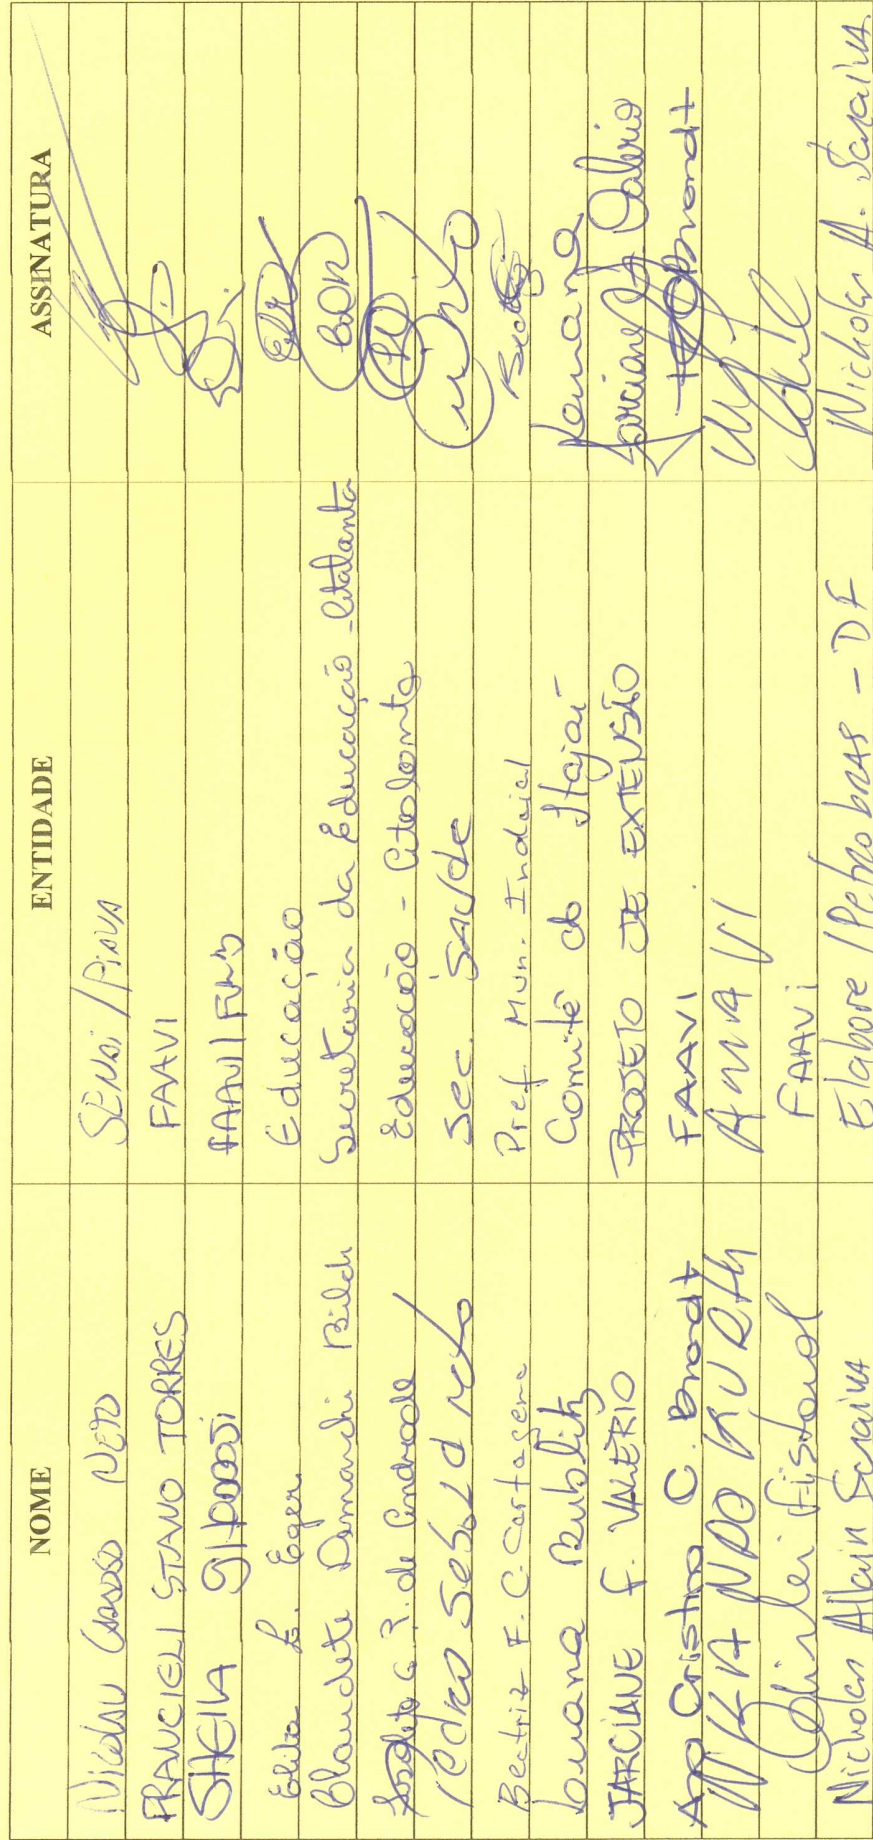 NOME ENTIDADE ASSINATURA
Nicolau Cardoso Neto SENAI / PIAVA
FRANCIELI STANO TORRES FAAVI
SHEILA FAAVI / FURB
Elita L. Eger Educação
Claudete Demarchi Pilch Secretaria da Educação - Atalanta
G. P. de Andrade Educação - Atalanta
Pedro Sebold Neto Sec. Saúde
Beatriz F. C. Cartagena Pref Mun. Indaial Beatriz
Luana Bublitz Comitê do Itajaí Louana
JARCIANE F. VALÉRIO PROJETO DE EXTENSÃO Jarciane F. Valério
Ana Cristina C. Brandt FAAVI Brandt
KURTH AMAVI
Fistarol FAAVI
Nicholas Allain Saraiva Elabore / Petrobras - DF Nicholas A. Saraiva